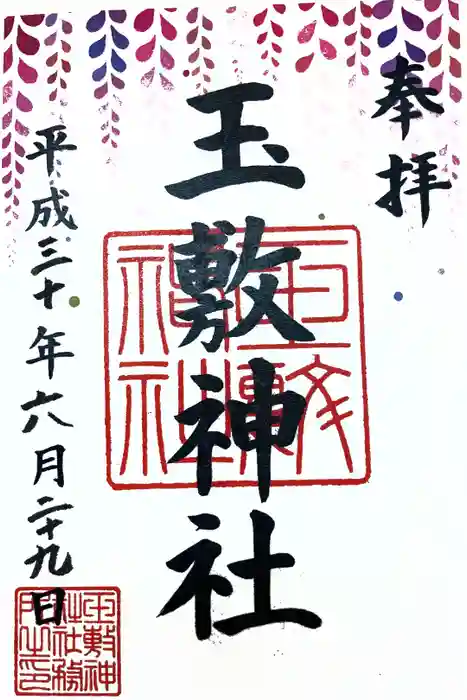 奉拝
玉敷神社
平成三十年六月二十九日
玉敷神社
玉敷神社務所之印